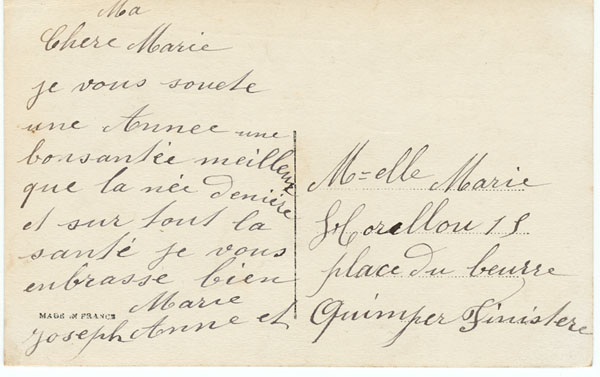 Ma
Chere Marie
je vous souete
une Annee une
bonsantée meilleure
que la née deniére
et sur tout la
santé je vous
enbrasse bien
Marie
Joseph Anne et
MADE IN FRANCE
M=elle Marie
Morellou 15
place du beurre
Quimper Finistere